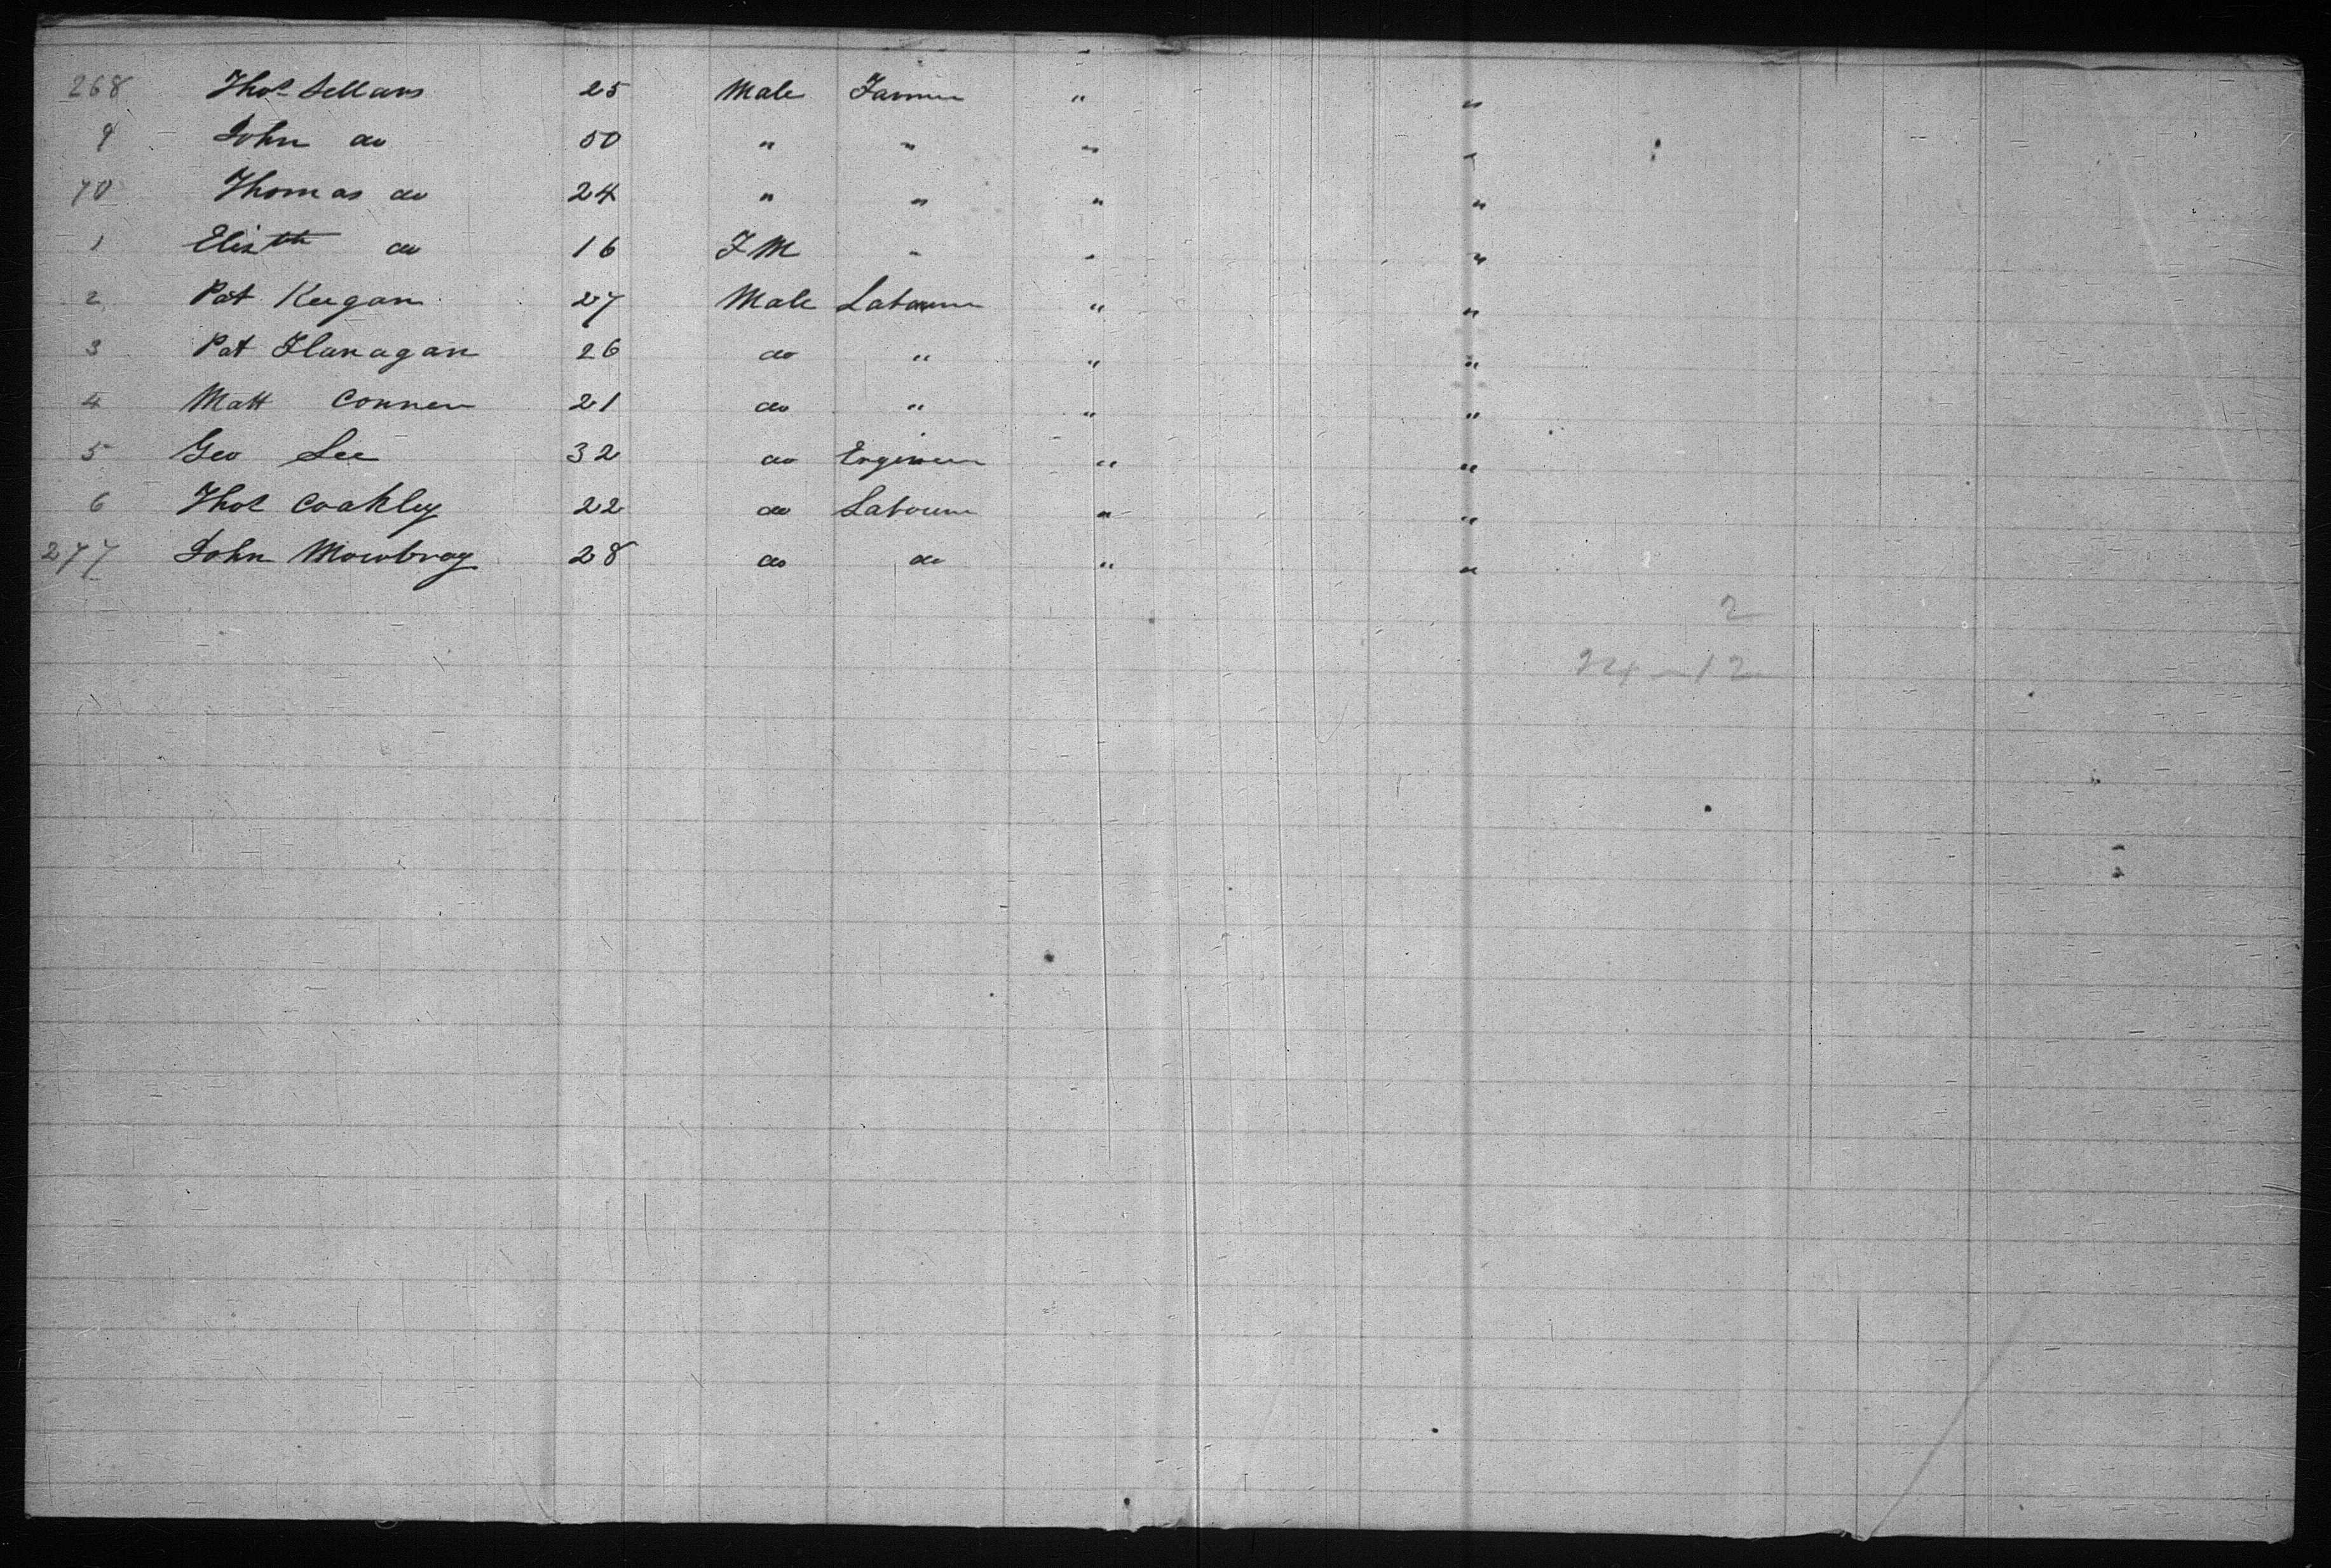 268 Thos Sellars 25 Male Farmer " "
9 John do 50 " " " "
70 Thomas do 24 " " " "
1 Elizth do 16 FM " " "
2 Pat Keegan 27 Male Labourer " "
3 Pat Flanagan 26 do " " "
4 Matt Conner 21 do " " "
5 Geo Lee 32 do Engineer " "
6 Thos Coakley 22 do Labourer " "
277 John Mowbray 28 do do " "
2
24 - 12